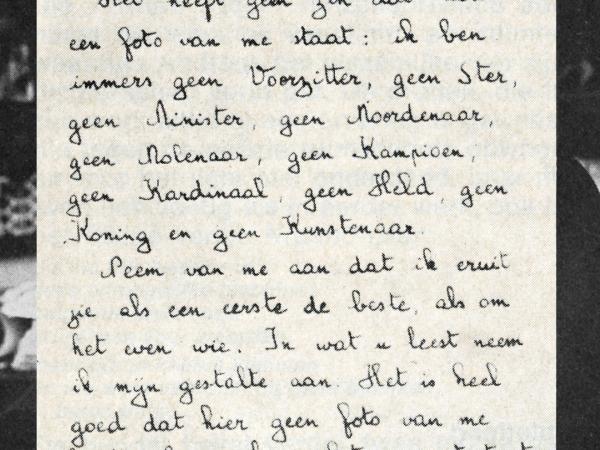 heeft geen zin dat
een foto van me staat: ik ben
immers geen Voorzitter, geen Ster,
geen Minister, geen Moordenaar,
geen Molenaar, geen Kampioen,
geen Kardinaal, geen Held, geen
Koning en geen Kunstenaar.
Neem van me aan dat ik eruit
zie als een eerste de beste, als om
het even wie. In wat u leest neem
ik mijn gestalte aan. Het is heel
goed dat hier geen foto van me